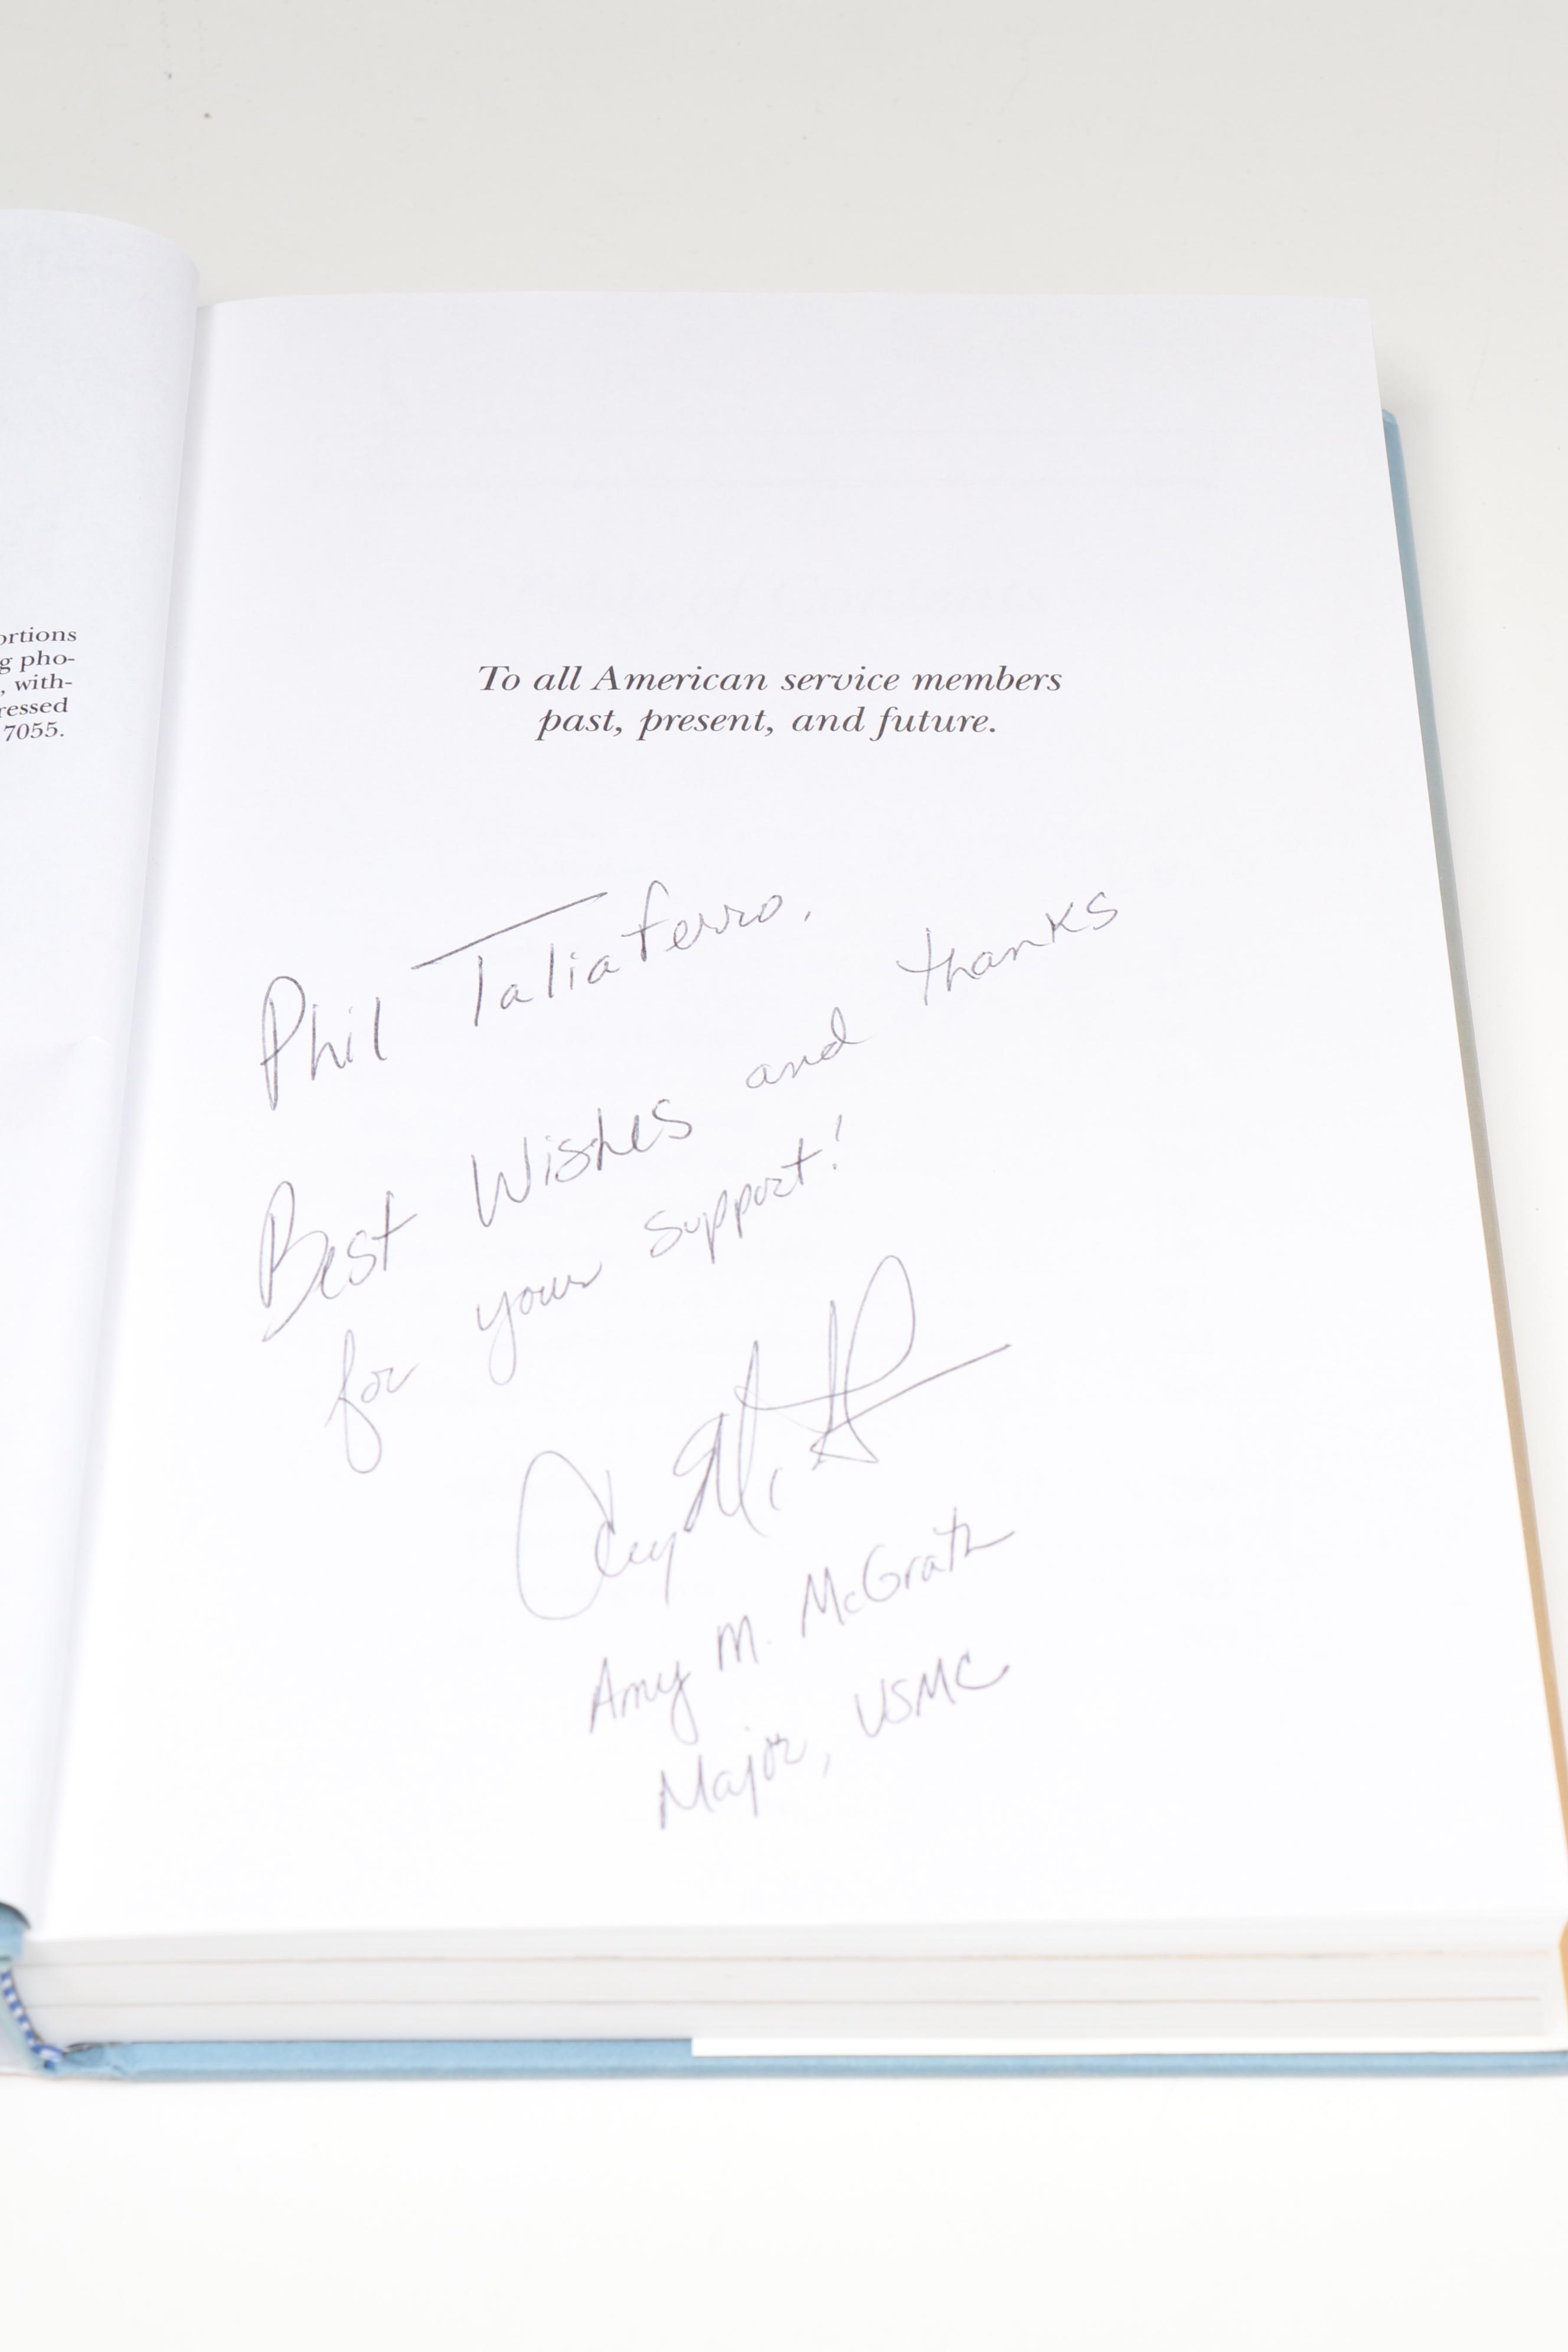 ortions
g pho-
, with-
ressed
7055.
To all American service members
past, present, and future.
Phil Taliaferro,
Best Wishes and thanks
for your support!
Amy M. McGrath
Major, USMC